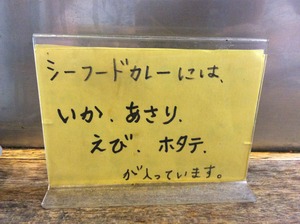 シーフードカレーには、
いか、あさり、
えび、ホタテ、
が入っています。